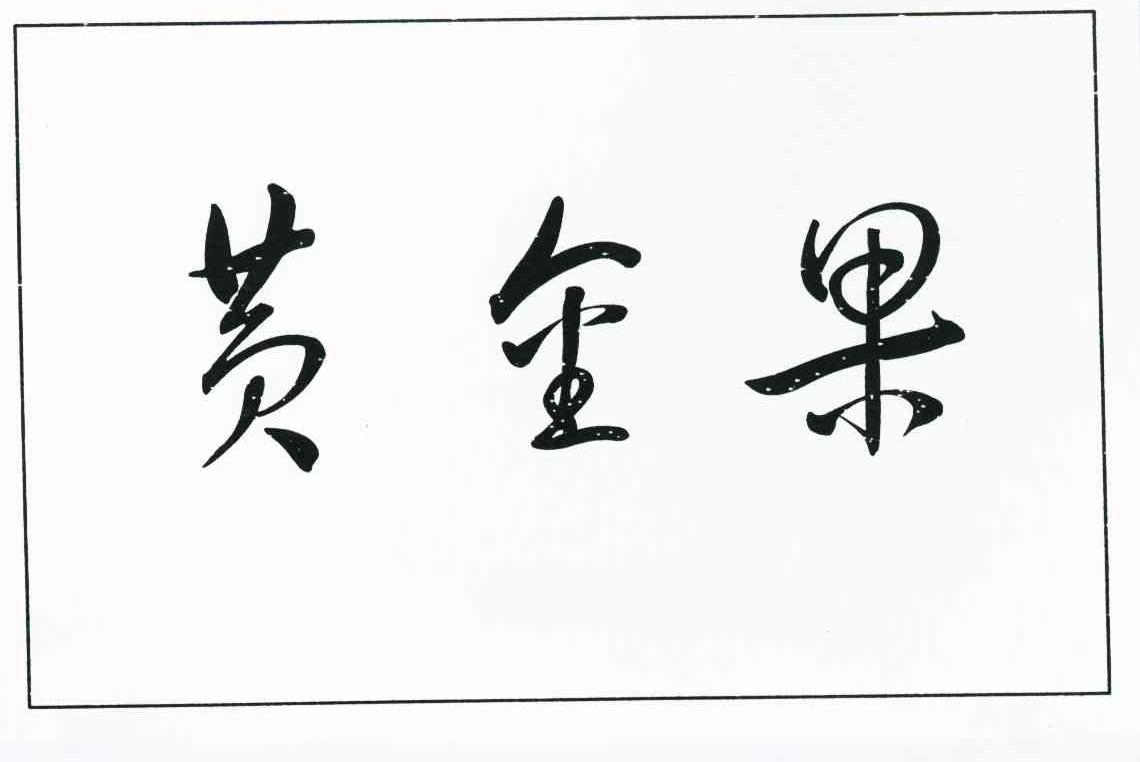 黄金果